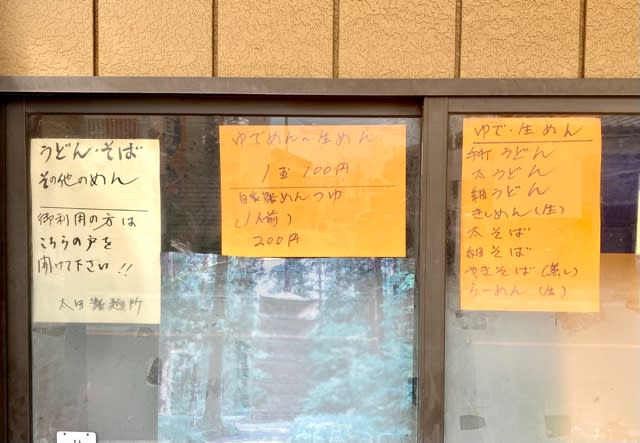 うどん・そば
その他のめん
御利用の方は
こちらの戸を
開けて下さい!!
太田製麺所
ゆでめん〜生めん
1玉 100円
自家製めんつゆ
(1人前)
200円
ゆで・生めん
うどん
太うどん
細うどん
きしめん(生)
太そば
細そば
やきそば(蒸し)
らーめん(生)